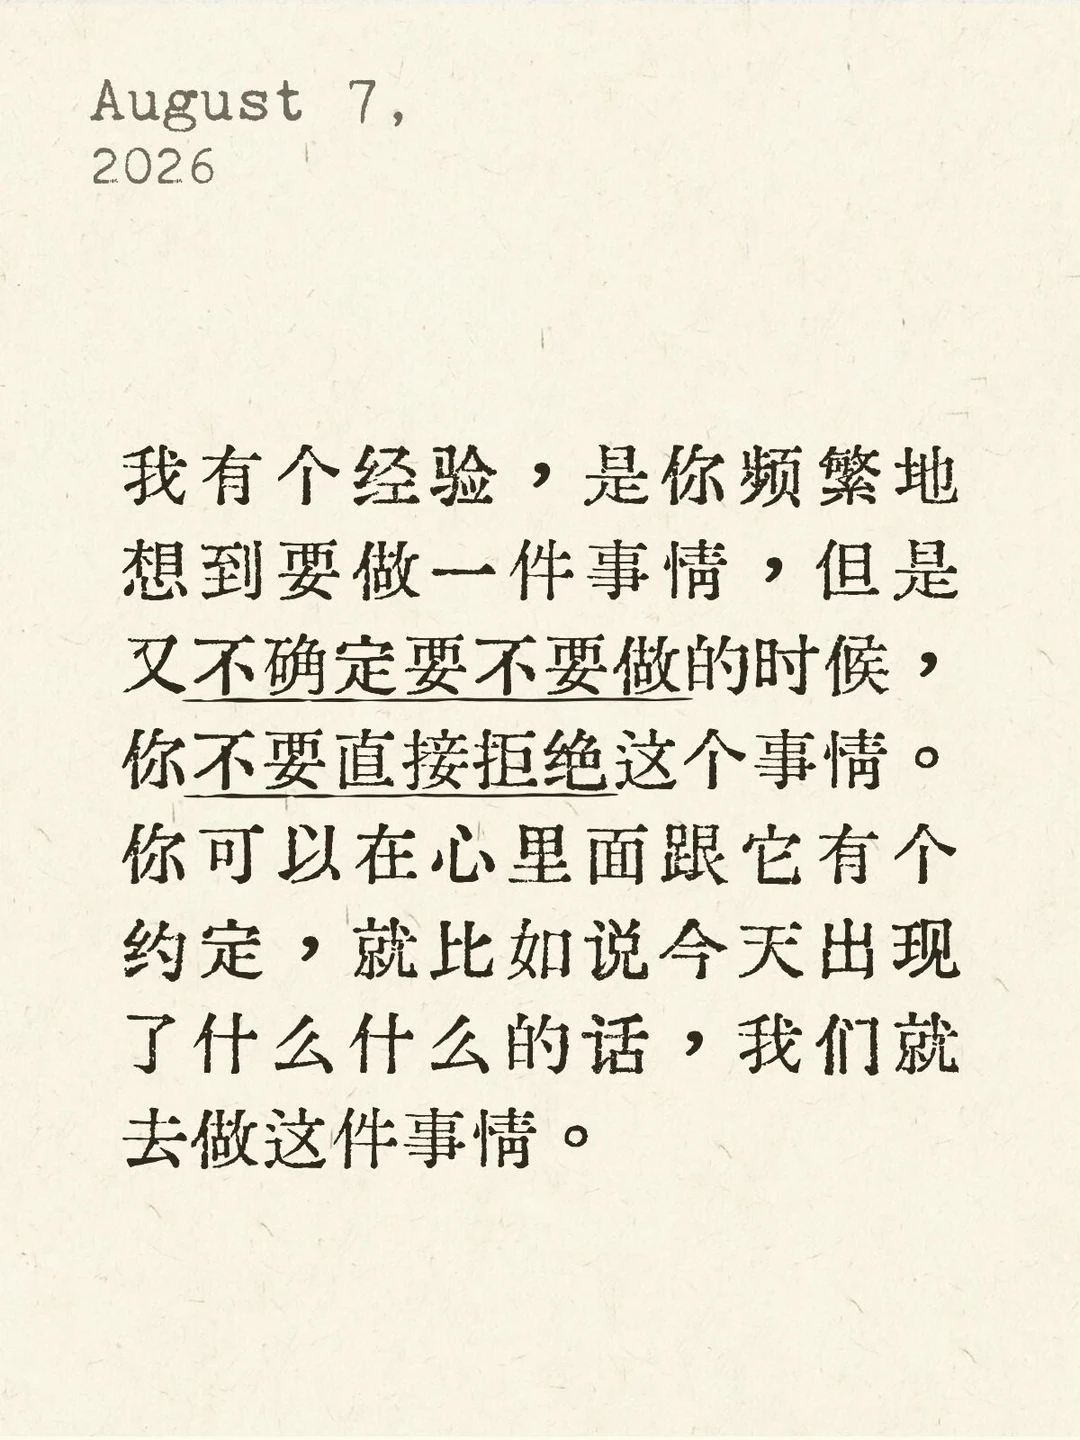 August 7,
2026
我有个经验，是你频繁地
想到要做一件事情，但是
又不确定要不要做的时候，
你不要直接拒绝这个事情。
你可以在心里面跟它有个
约定，就比如说今天出现
了什么什么的话，我们就
去做这件事情。